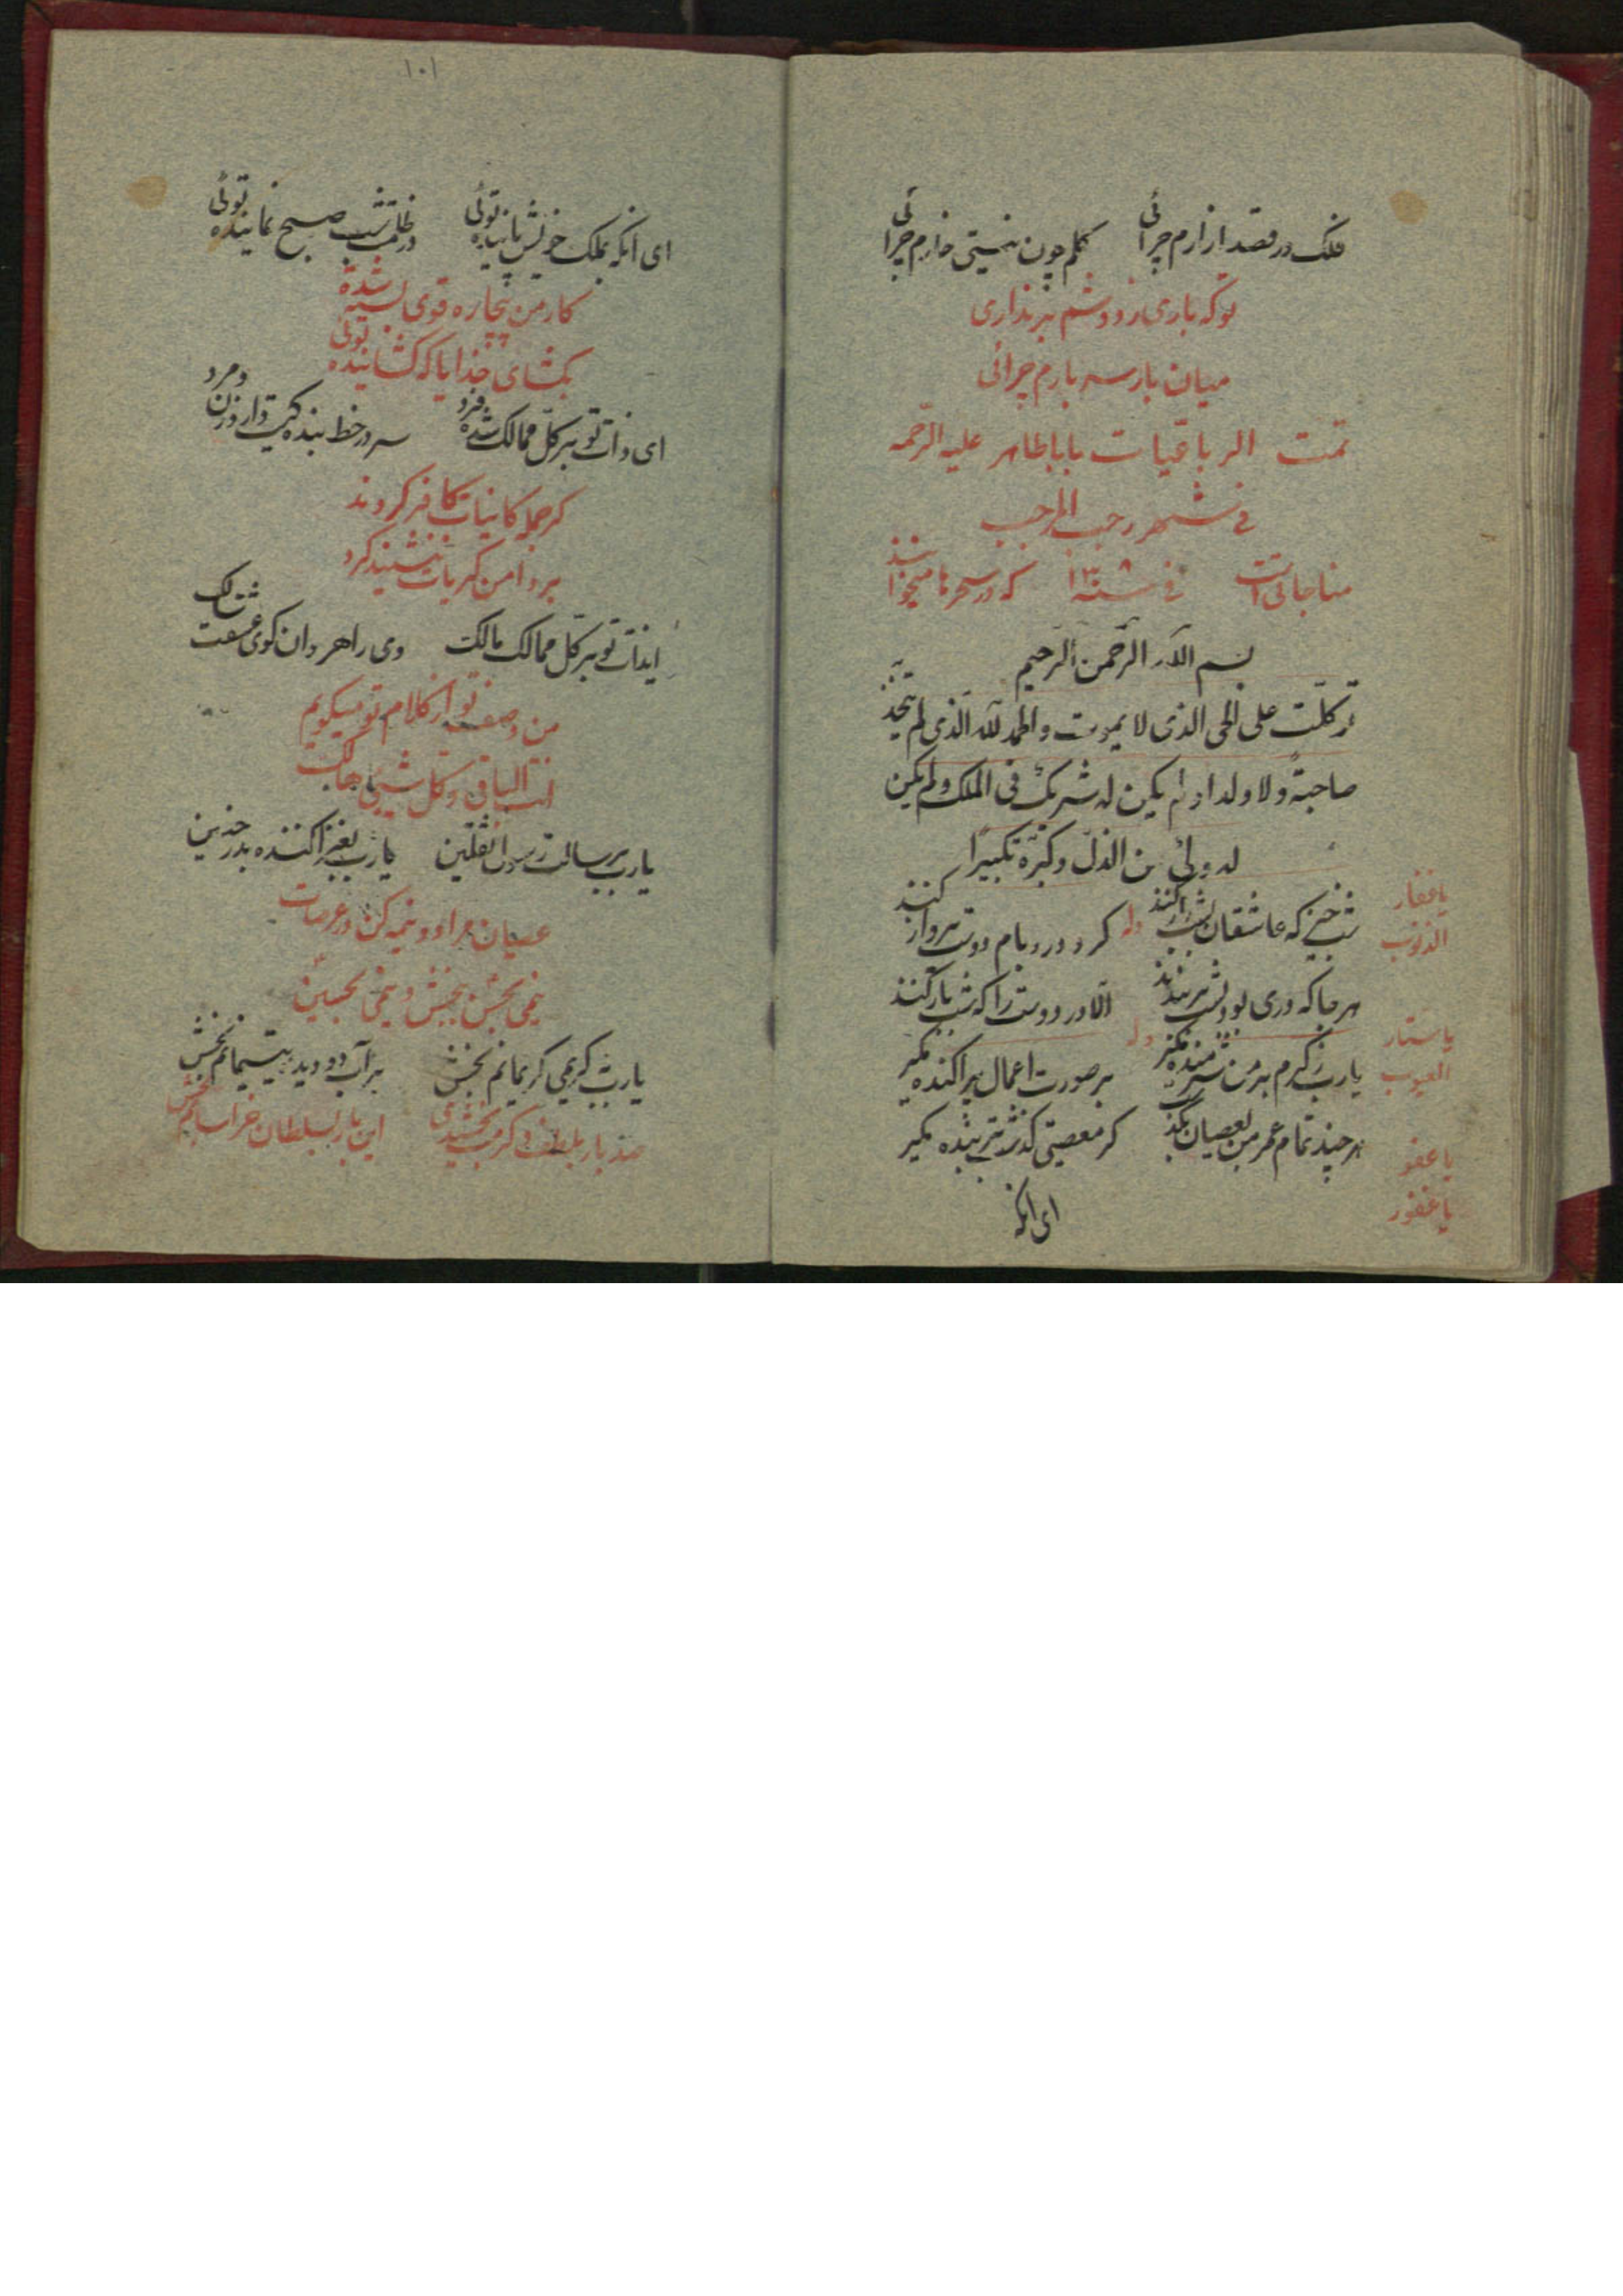 فلک در قصد ازارم چرائی گلم چون نیستی خارم چرائی
توکه باری ز دوشم بر نداری
میان بار سر بارم چرائی
تمت الرباعیات باباطاهر علیه الرحمه
فی شهر رجب المرجب
مناجاتی است فی سنه ۱۳۰۸ که در سحرها میخوانند
بسم الله الرحمن الرحیم
توکلت علی الحی الذی لا یموت والحمد لله الذی لم یتخذ
صاحبة ولا ولدا ولم یکن له شریک فی الملک ولم یکن
له ولی من الذل وکبره تکبیرا
یا غفار
الذنوب
شب خیز که عاشقان بشب راز کنند وله کرد در و بام دوست پرواز کنند
هر جا که دری بود بشب بر بندند الا در دوست را که شب باز کنند
یا ستار
العیوب
یارب ز کرم بر من شرمنده مگیر وله بر صورت اعمال پراکنده مگیر
هر چند تمام عمر من بعصیان بگذشت کر معصیتی کذشت بر بنده مگیر
یا عفو
یا غفور
ای انکه
۱۰۱
ای انکه بملک خویش پاینده توئی در ظلمت شب صبح نماینده توئی
کار من بیچاره قوی بسته شده
بکشای خدایا که کشاینده توئی
ای ذات تو بر کل ممالک شده فرد سر در خط بنده کیت دارد زن و مرد
کر جمله کاینات کافر کردند
بر دامن کبریات ننشیند کرد
ایذات تو بر کل ممالک مالک وی راهروان کوی عشقت سالک
من وصف تو از کلام تو میکویم
انت الباقی و کل شیئ هالک
یارب برسالت رسول الثقلین یارب بغزا کننده بدر و حنین
عصیان مرا دو نیمه کن در عرصات
نیمی بحسن ببخش و نیمی بحسین
یارب بکریمی کریمانم بخش بر آب دو دیده یتیمانم بخش
صد بار بلطف و کرمت بخشیدی این بار بسلطان خراسانم بخش